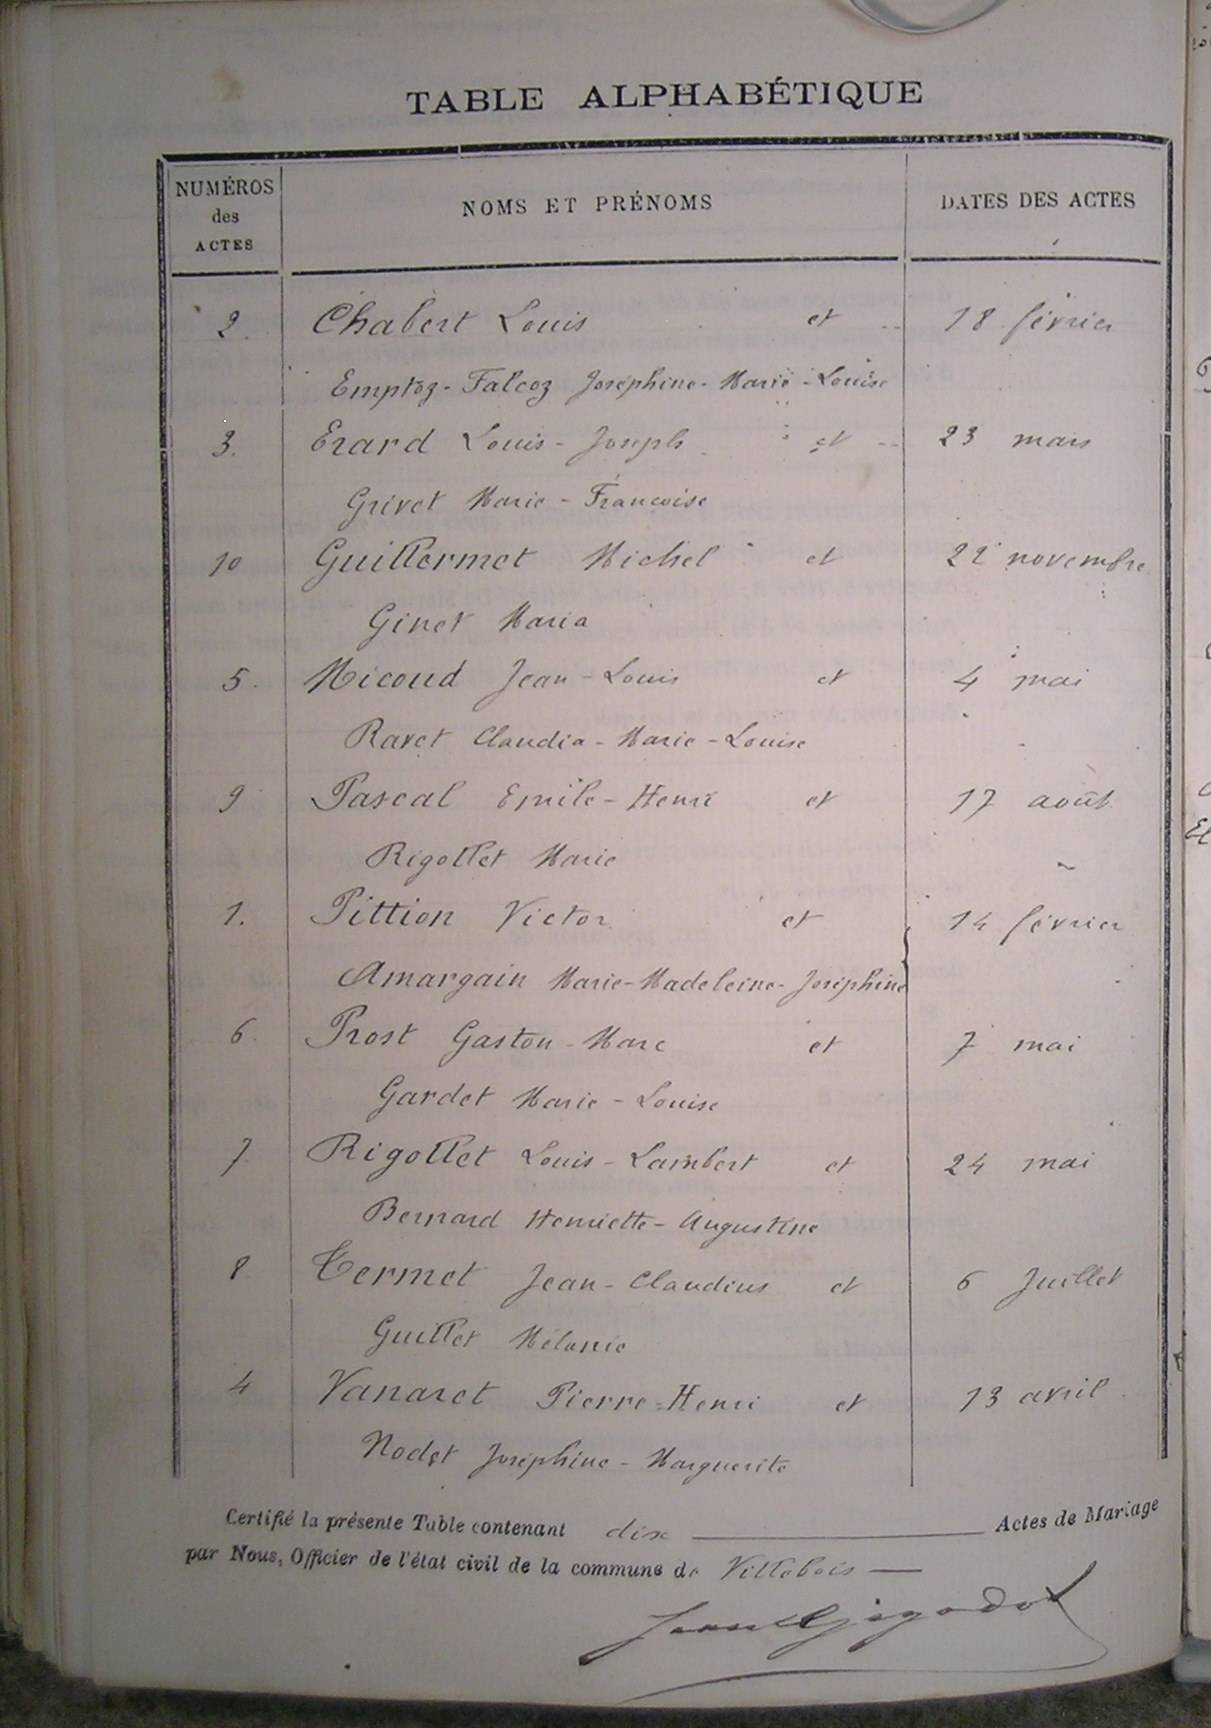 TABLE ALPHABÉTIQUE
NUMÉROS des ACTES NOMS ET PRÉNOMS DATES DES ACTES
2. Chabert Louis et 18 février
Emptoz-Falcoz Joséphine-Marie-Louise
3. Erard Louis-Joseph et 23 mars
Grivet Marie-Françoise
10 Guillermet Michel et 22 novembre
Ginet Maria
5. Micoud Jean-Louis et 4 mai
Ravet Claudia-Marie-Louise
9 Pascal Emile-Henri et 17 août
Rigollet Marie
1. Pittion Victor et 14 février
Amargain Marie-Madeleine-Joséphine
6. Prost Gaston-Marc et 7 mai
Gardet Marie-Louise
7. Rigollet Louis-Lambert et 24 mai
Bernard Henriette-Augustine
8 Termet Jean-Claudius et 6 Juillet
Guillet Mélanie
4 Vanaret Pierre-Henri et 13 avril
Nodet Joséphine-Marguerite
Certifié la présente Table contenant dix Actes de Mariage
par Nous, Officier de l'état civil de la commune de Villebois